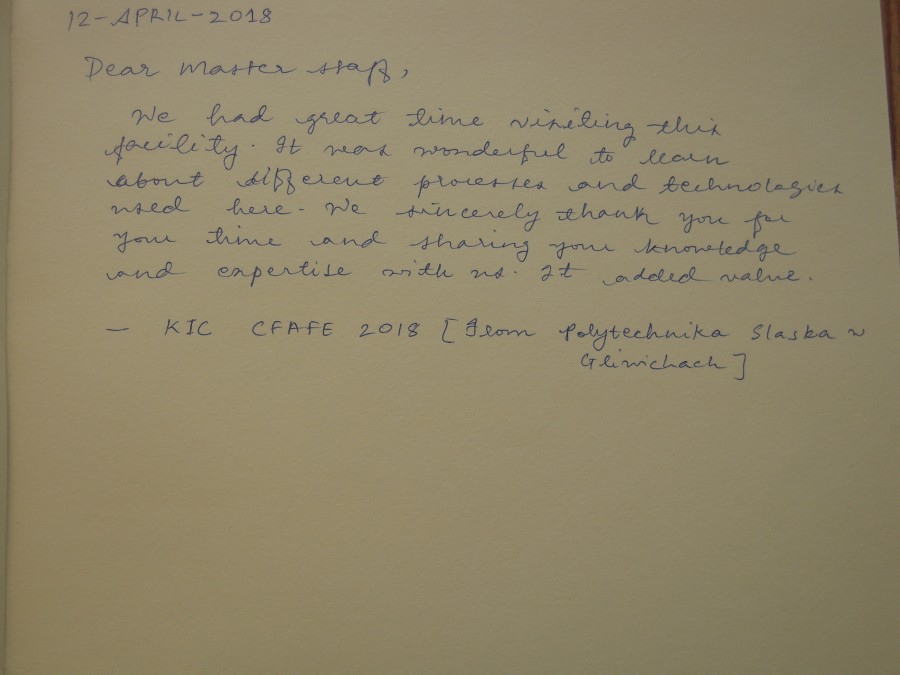 12-APRIL-2018
Dear Master staff,
We had great time visiting this
facility. It was wonderful to learn
about different processes and technologies
used here. We sincerely thank you for
your time and sharing your knowledge
and expertise with us. It added value.
— KIC CFAFE 2018 [From Polytechnika Slaska w
Gliwichach]